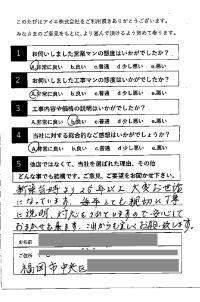 このたびはアイニ株式会社をご利用頂きありがとうございます。
みなさまのご意見をもとに、より選んで頂けるよう努めて参ります。
1 お伺いしました営業マンの態度はいかがでしたか?
a.非常に良い b.良い c.普通 d.少し悪い e.悪い
2 お伺いしました工事マンの態度はいかがでしたか?
a.非常に良い b.良い c.普通 d.少し悪い e.悪い
3 工事内容や価格の説明はいかがでしたか?
a.非常に良い b.良い c.普通 d.少し悪い e.悪い
4 当社に対する総合的なご感想はいかがでしょうか?
a.非常に良い b.良い c.普通 d.少し悪い e.悪い
5 他店ではなくて、当社を選ばれた理由、その他
どんな事でも結構です。ご意見、ご要望をお聞かせ下さい。
新築当時より25年以上大変お世話
になっています。毎年とても親切に丁寧
に説明、対応されていますので安心して
おまかせ出来ます。これからも宜しくお願い致します。
お名前
ご住所
福岡市中央区